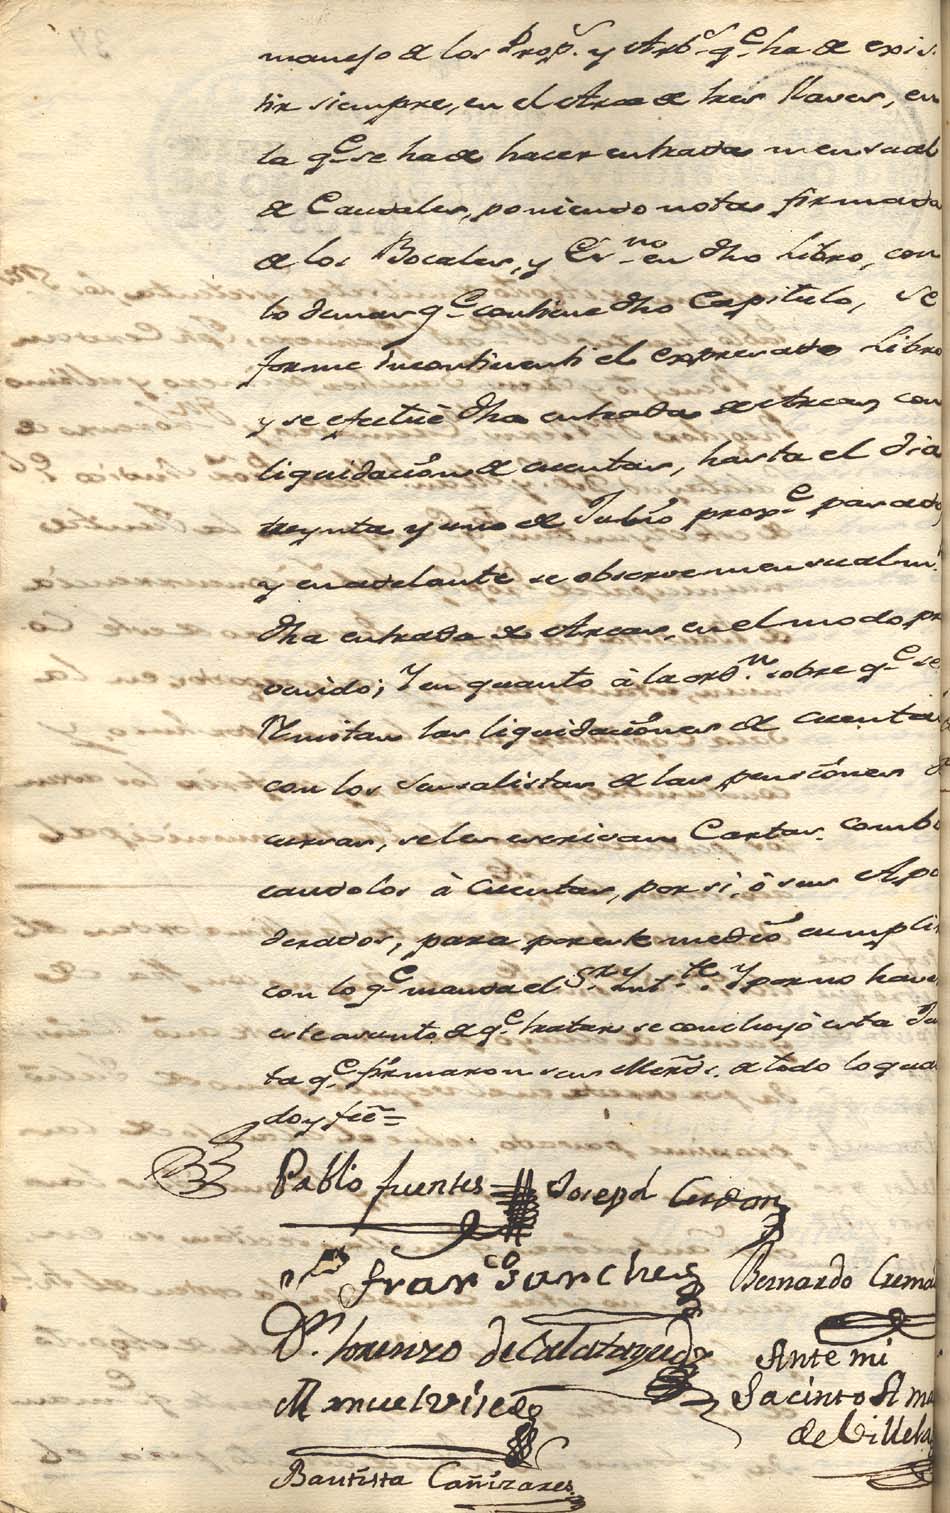 manejo de los Prop.s y Arb.s q.e ha de exis-
tir siempre, en el Arca de tres llaves, en
la q.e se ha de hacer entrada mensual
de Caudales, poniendo notas firmada
de los Bocales, y Es.no en dho Libro, con
lo demas q.e contiene dho Capitulo, se
forme incontinenti el expresado Libro
y se efectuè dha entrada de Arcas, con
liquidación de cuentas, hasta el dia
treynta y uno de Julio prox.e pasado,
y en adelante se observe mensualm.
dha entrada de Arcas, en el modo pre
venido; Y en quanto à la orn.n sobre q.e se
Remitan las liquidaciónes de cuentas
con los Sensalistas de las pensiónes
cursas, se les escrivan Cartas combo
candolos à Cuentas, por sí, ó sus Apo
derados, para por este medio cumplir
con lo q.e manda el S.r Int.te Y por no haver
este asunto de q.e tratar se concluyò esta Ju
ta q.e firmaron sus Merds. de todo lo qual
doy feè =
Pablo fuentes Joseph Cerdan
fran.co Sanchez Bernardo Crema
D.n Lorenzo de Calatayud
Ante mi
Manuel Visedo Jacinto Ama
de Villela
Bautista Cañizares